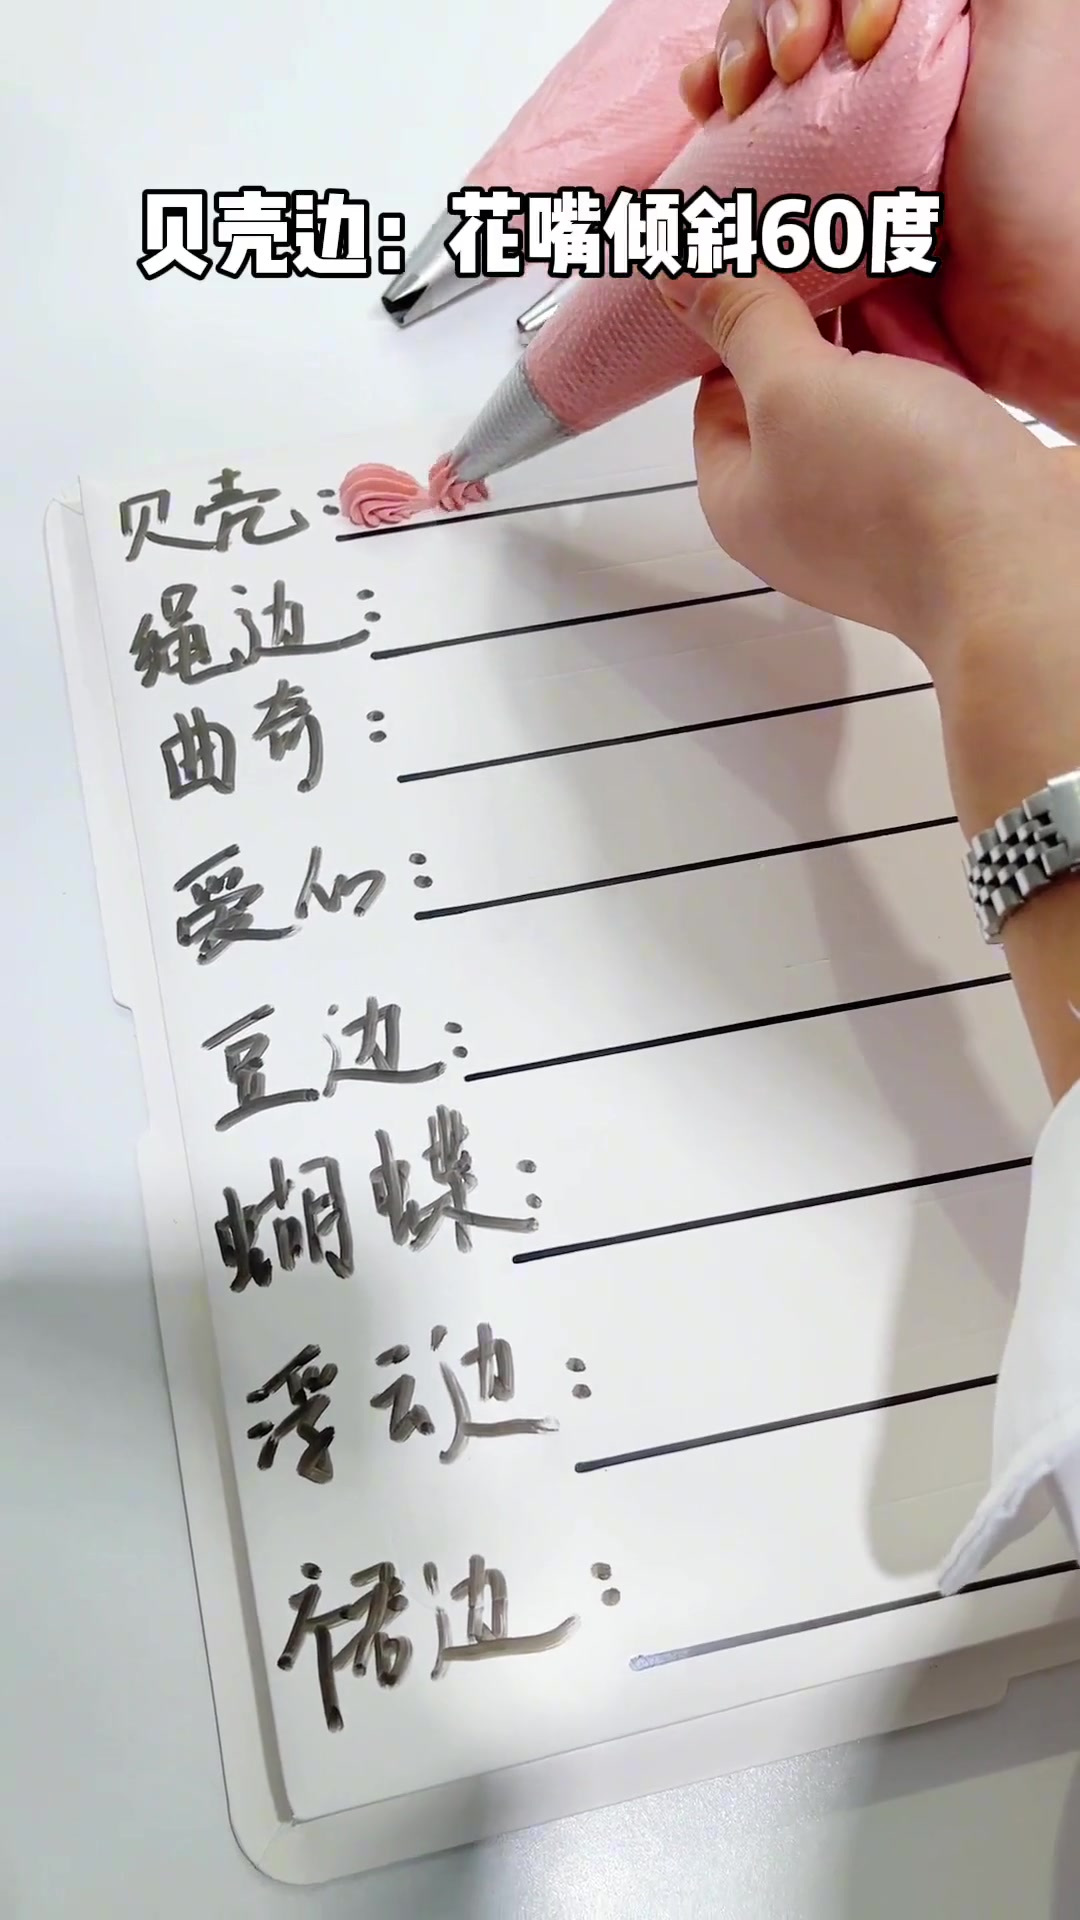 贝壳边：花嘴倾斜60度
贝壳：
绳边：
曲奇：
爱心：
豆边：
蝴蝶：
浮动边：
裙边：